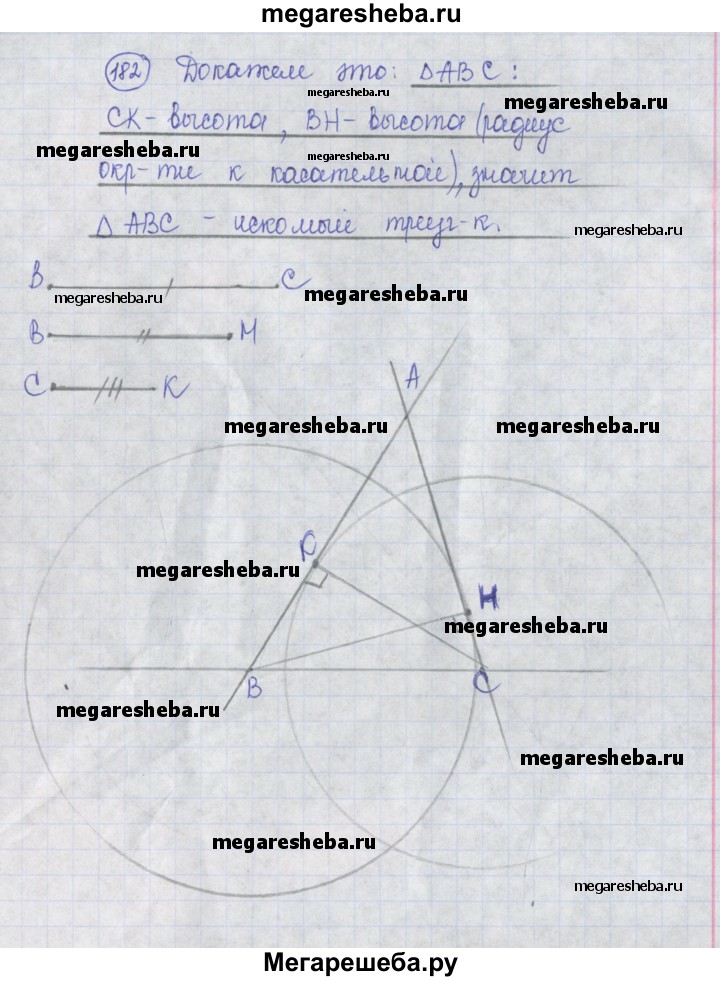 megaresheba.ru
182 Докажем это: ΔABC:
megaresheba.ru
megaresheba.ru
CK - высота, BH - высота (радиус
megaresheba.ru
megaresheba.ru
окр-ти к касательной), значит
Δ ABC - искомый треуг-к.
megaresheba.ru
B C
megaresheba.ru
megaresheba.ru
B M
C K
A
megaresheba.ru
megaresheba.ru
K
megaresheba.ru
H
megaresheba.ru
B C
megaresheba.ru
megaresheba.ru
megaresheba.ru
megaresheba.ru
Мегарешеба.ру